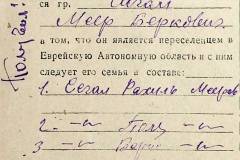 ся гр. Сегал
Меер Беркович
в том, что он является переселенцем в
Еврейскую Автономную область и с ним
следует его семья в составе:
1. Сегал Рахиль Мееров
2. —"— Поля —"—
3 —"— —"—